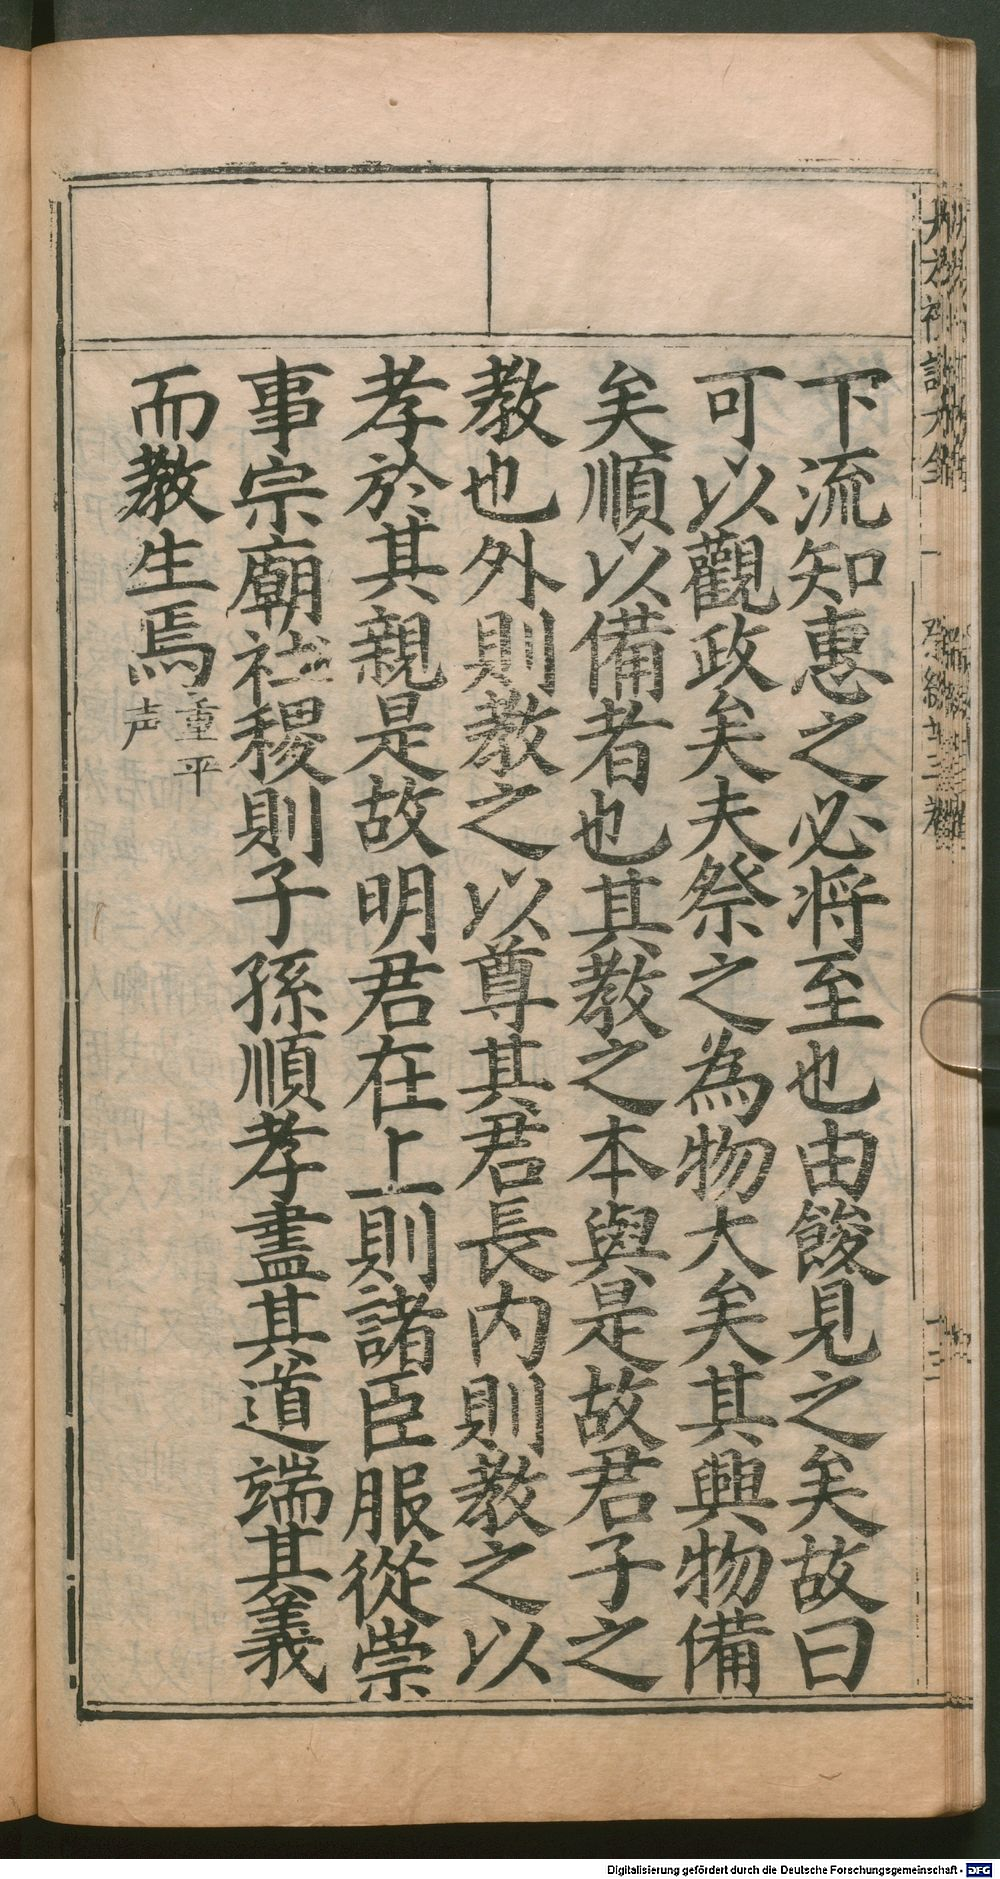 下流知惠之必將至也由餕見之矣故曰
可以觀政矣夫祭之為物大矣其興物備
矣順以備者也其教之本與是故君子之
教也外則教之以尊其君長内則教之以
孝於其親是故明君在上則諸臣服從崇
事宗廟社稷則子孫順孝盡其道端其義
而教生焉
重平
声
Digitalisierung gefördert durch die Deutsche Forschungsgemeinschaft - DFG